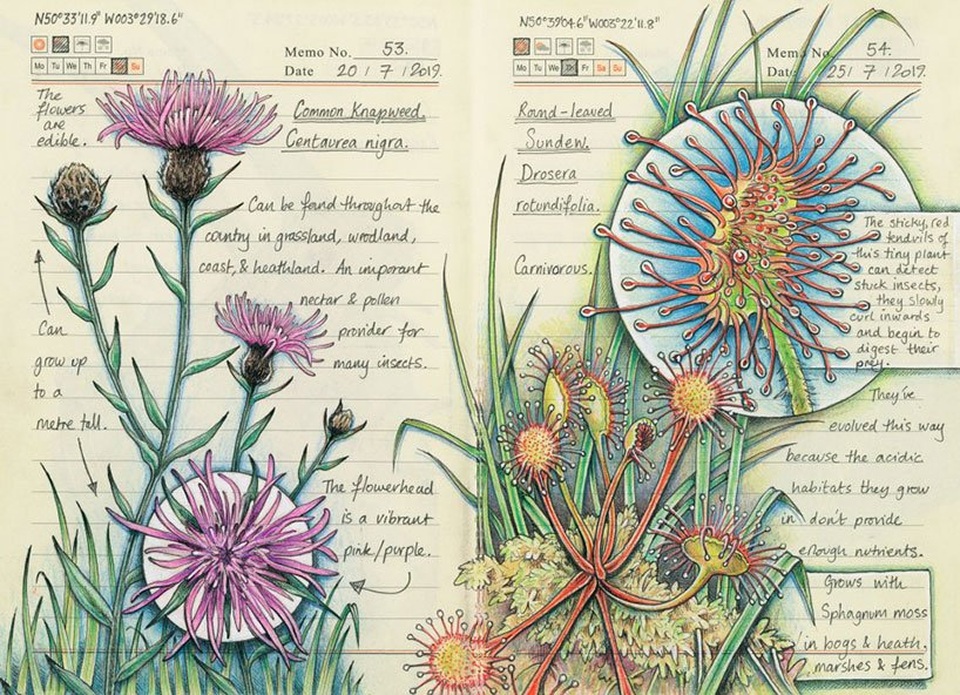 N50°33'11.9" W003°29'18.6"
Mo Tu We Th Fr Sa Su
Memo No. 53.
Date 20 / 7 / 2019.
The
flowers
are
edible.
Common Knapweed.
Centaurea nigra.
Can be found throughout the
country in grassland, woodland,
coast, & heathland. An imporant
nectar & pollen
provider for
many insects.
Can
grow up
to a
metre tall.
The flowerhead
is a vibrant
pink/purple.
N50°39'04.6" W003°22'11.8"
Mo Tu We Th Fr Sa Su
Memo No. 54.
Date 25 / 7 / 2019.
Round-leaved
Sundew.
Drosera
rotundifolia.
Carnivorous.
The sticky, red
tendrils of
this tiny plant
can detect
stuck insects,
they slowly
curl inwards
and begin to
digest their
prey.
They've
evolved this way
because the acidic
habitats they grow
in don't provide
enough nutrients.
Grows with
Sphagnum moss
in bogs & heath,
marshes & fens.